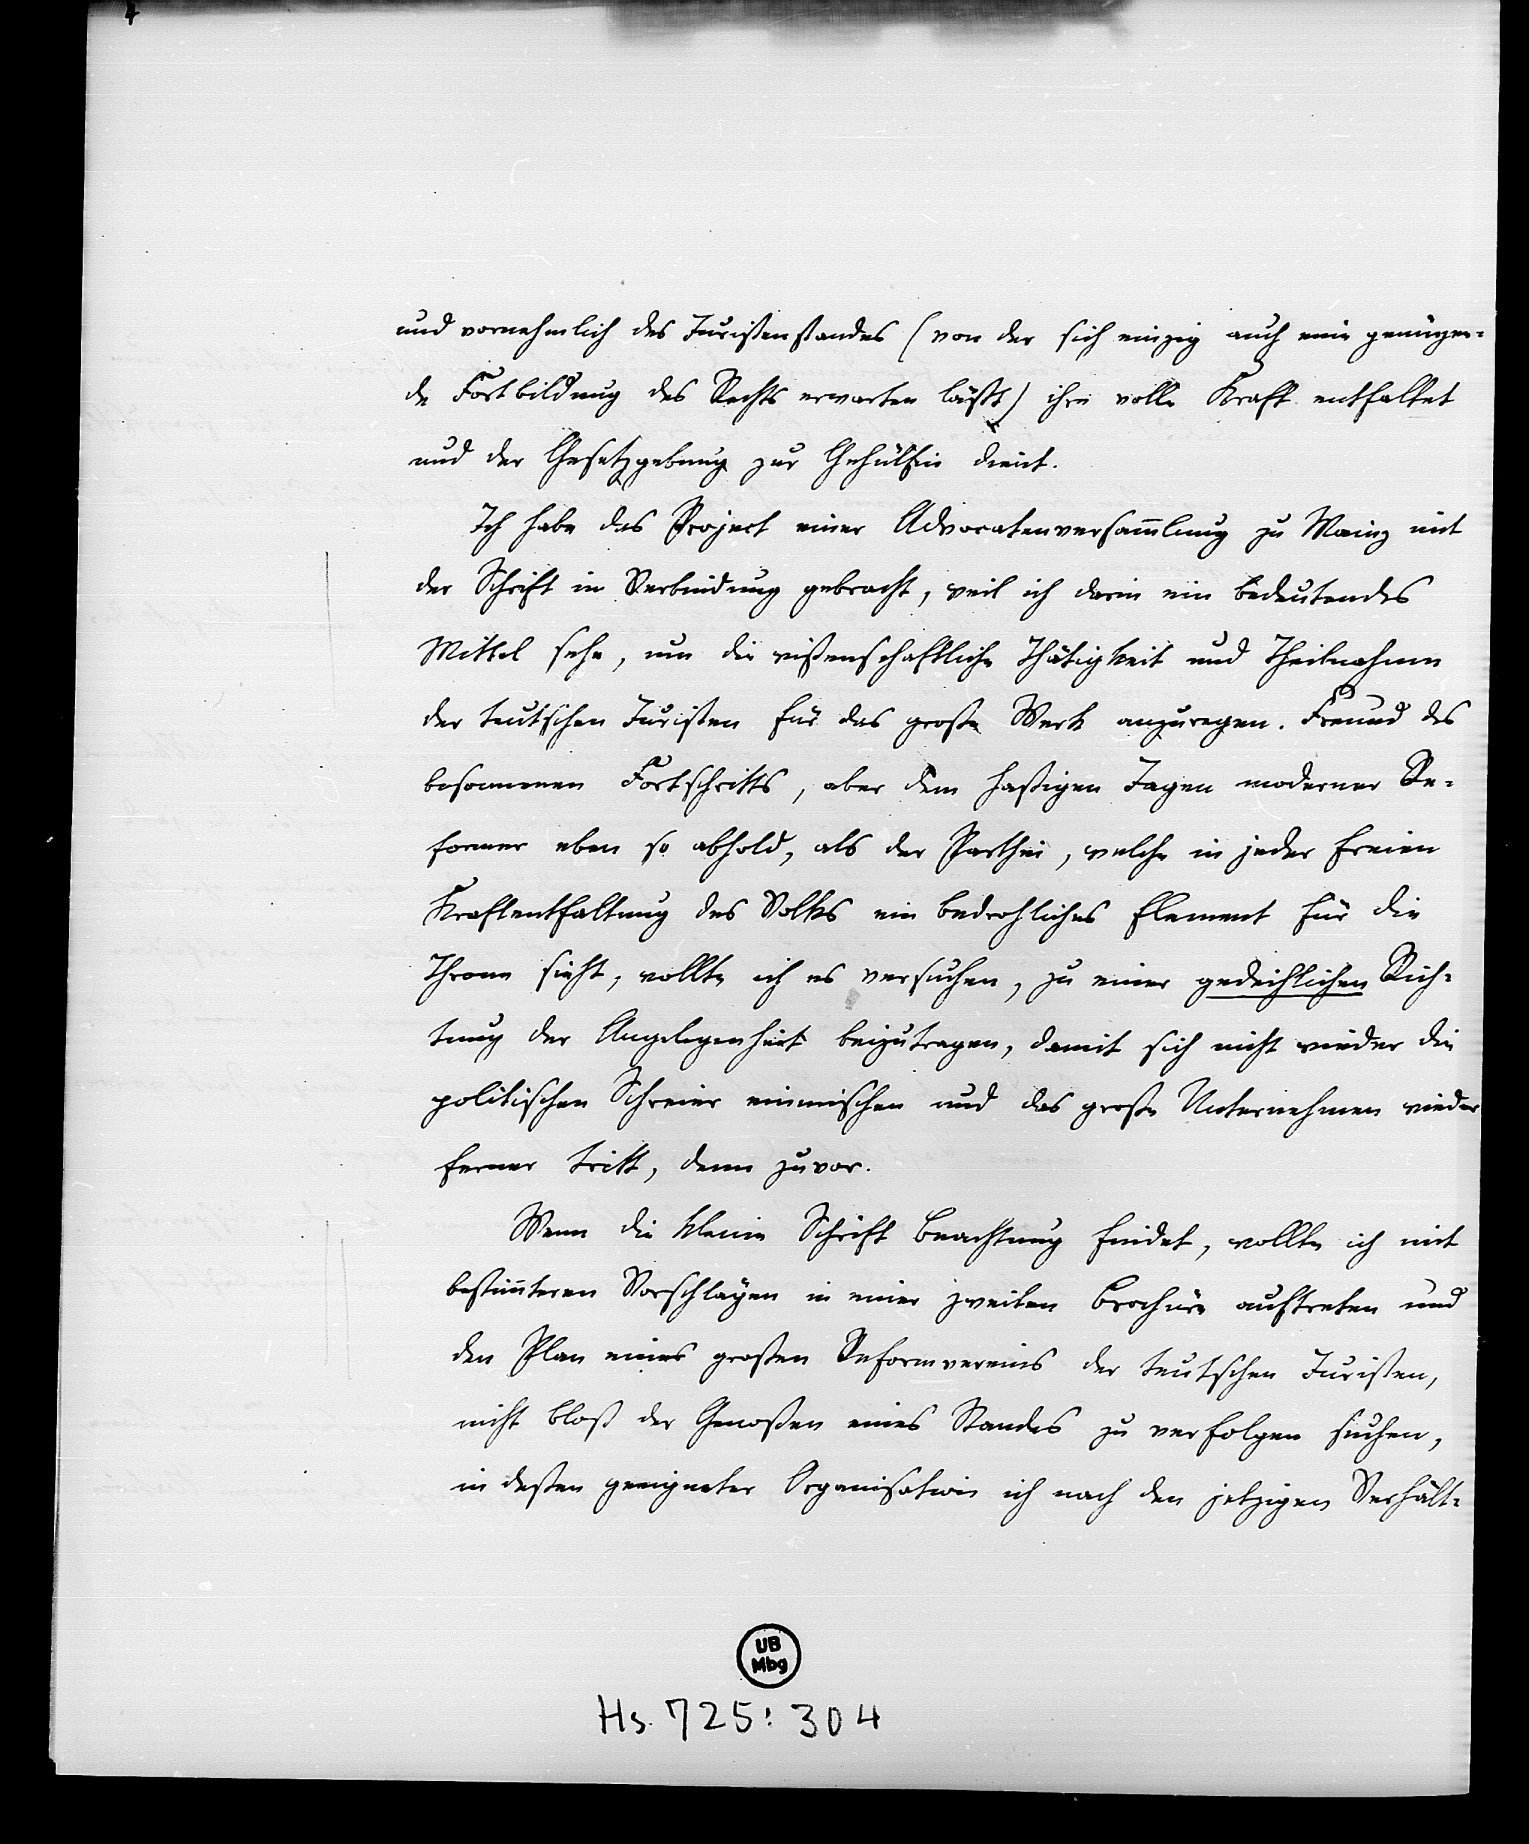 und vornehmlich des Juristenstandes (von der sich einzig auch eine genügen-
de Fortbildung des Rechts erwarten läßt) ihre volle Kraft entfaltet
und der Gesetzgebung zur Gehülfin dient.
Ich habe das Project einer Advocatenversam̅lung zu Mainz mit
der Schrift in Verbindung gebracht, weil ich darin ein bedeutendes
Mittel sehe, um die wißenschaftliche Thätigkeit und Theilnahme
der teutschen Juristen für das große Werk anzuregen. Freund des
besonnenen Fortschritts, aber dem hastigen Jagen moderner Re-
former eben so abhold, als der Parthei, welche in jeder freien
Kraftentfaltung des Volks ein bedrohliches Element für die
Throne sieht, wollte ich es versuchen, zu einer gedeihlichen Rich-
tung der Angelegenheit beizutragen, damit sich nicht wieder die
politischen Schreier einmischen und das große Unternehmen wieder
ferner tritt, denn zuvor.
Wenn die kleine Schrift Beachtung findet, wollte ich mit
bestim̅teren Vorschlägen in einer zweiten Brochüre auftreten und
den Plan eines großen Reformvereins der teutschen Juristen,
nicht bloß der Genoßen eines Standes zu verfolgen suchen,
in deßen geeigneter Organisation ich nach den jetzigen Verhält-
UB
Mbg
Hs. 725: 304